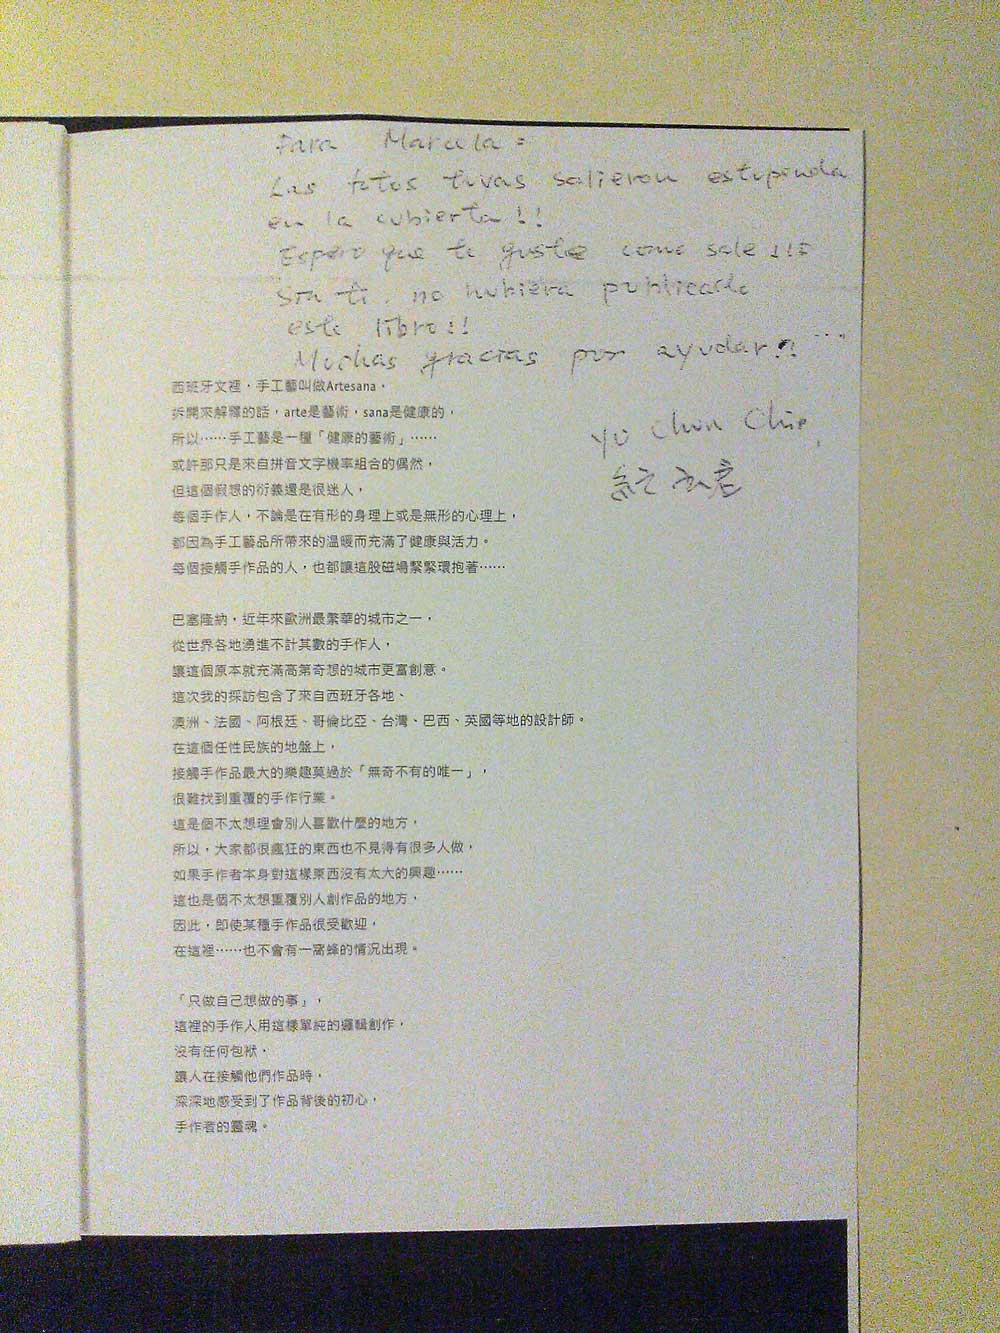 Para Marcela:
Las fotos tuyas salieron estupenda
en la cubierta!!
Espero que te guste como sale!!!
Sin ti, no hubiera publicado
este libro!!
Muchas gracias por ayudar!!...
Yu Chun Chie,
西班牙文裡，手工藝叫做Artesana，
拆開來解釋的話，arte是藝術，sana是健康的，
所以……手工藝是一種「健康的藝術」……
或許那只是來自拼音文字機率組合的偶然，
但這個假想的衍義還是很迷人，
每個手作人，不論是在有形的身理上或是無形的心理上，
都因為手工藝品所帶來的溫暖而充滿了健康與活力。
每個接觸手作品的人，也都讓這股磁場緊緊環抱著……
巴塞隆納，近年來歐洲最繁華的城市之一，
從世界各地湧進不計其數的手作人，
讓這個原本就充滿高第奇想的城市更富創意。
這次我的採訪包含了來自西班牙各地、
澳洲、法國、阿根廷、哥倫比亞、台灣、巴西、英國等地的設計師。
在這個任性民族的地盤上，
接觸手作品最大的樂趣莫過於「無奇不有的唯一」，
很難找到重覆的手作行業。
這是個不太想理會別人喜歡什麼的地方，
所以，大家都很瘋狂的東西也不見得有很多人做，
如果手作者本身對這樣東西沒有太大的興趣……
這也是個不太想重覆別人創作品的地方，
因此，即使某種手作品很受歡迎，
在這裡……也不會有一窩蜂的情況出現。
「只做自己想做的事」，
這裡的手作人用這樣單純的邏輯創作，
沒有任何包袱，
讓人在接觸他們作品時，
深深地感受到了作品背後的初心，
手作者的靈魂。